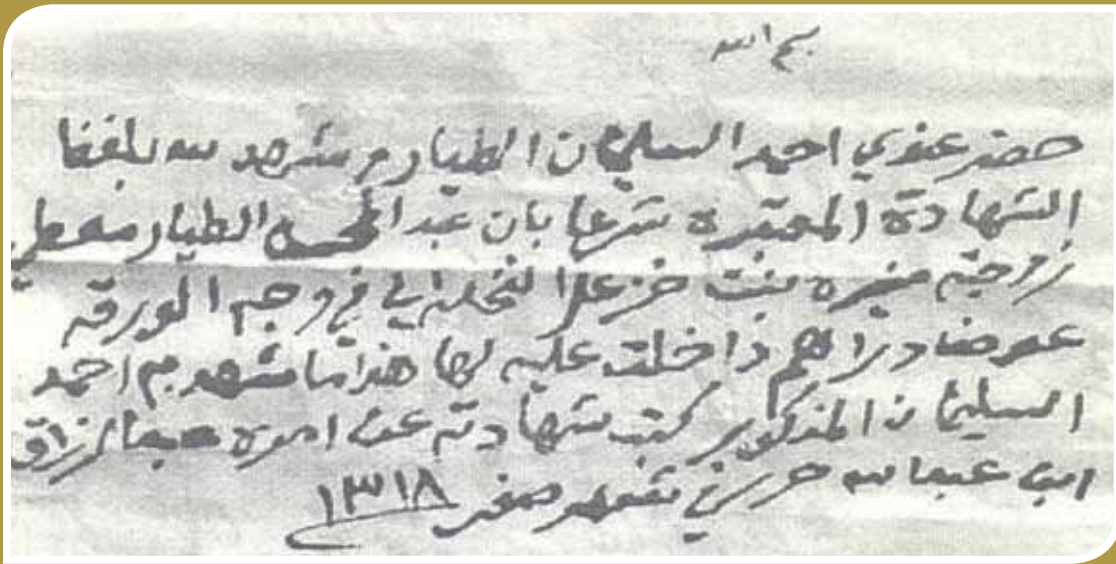 بسم الله
حضر عندي احمد السليمان الطيار وشهد لله بلفظا
الشهادة المعتبره شرعا بان عبد المحسن الطيار معطي
زوجته منيره بنت خزعل النخله الي في وجه الورقه
عوضا دراهم داخلت عليه لها هذا ما شهد به احمد
السليمان المذكور كتب شهادته عن امره عبد الرزاق
ابن عبدالله حرر في شهر صفر ١٣١٨